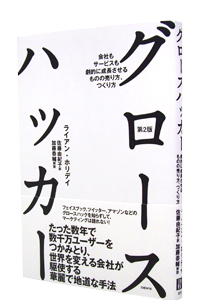 グロースハッカー
第2版
会社も
サービスも
劇的に成長させる
ものの売り方、
つくり方
ライアン・ホリデイ
佐藤由紀子 訳
加藤恭輔 解説
フェイスブック、ツイッター、アマゾンなどの
グロースハックを知らずして、
マーケティングは語れない!
たった数年で
数千万ユーザーを
つかみとり、
世界を変える会社が
駆使する
華麗で地道な手法
グロースハッカー
第2版